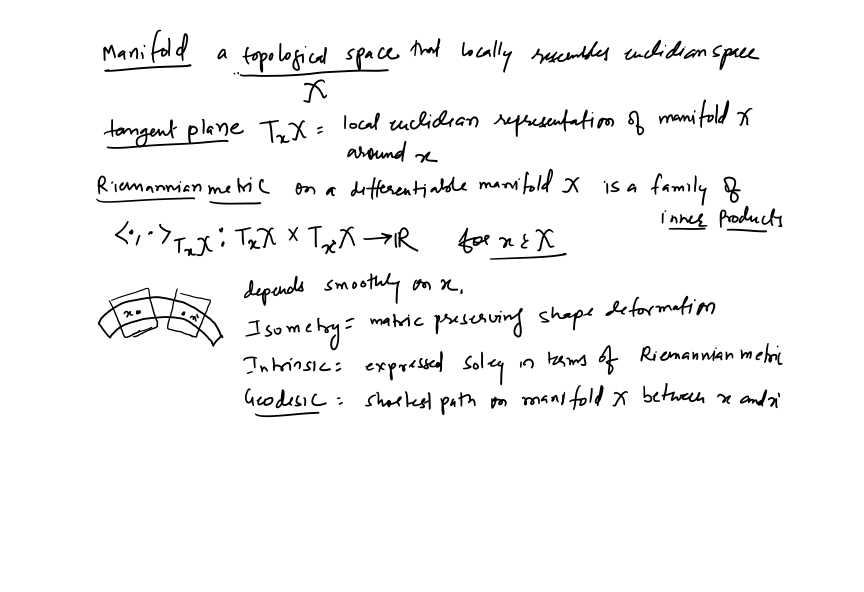 Manifold a topological space that locally resembles euclidian space
X
tangent plane TₓX = local euclidean representation of manifold X
around x
Riemannian metric on a differentiable manifold X is a family of
inner products
<·,·>TₓX : TₓX × TₓX → ℝ for x ε X
depends smoothly on x.
x x'
Isometry = matric preserving shape deformation
Intrinsic = expressed soley in terms of Riemannian metric
Geodesic = shortest path on manifold X between x and x'